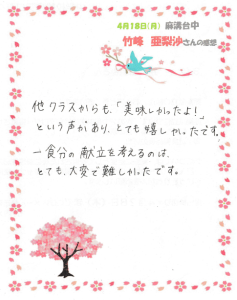 4月18日(月) 麻溝台中
竹峰 亜梨沙さんの感想
他クラスからも、「美味しかったよ!」
という声があり、とても嬉しかったです。
一食分の献立を考えるのは、
とても、大変で難しかったです。